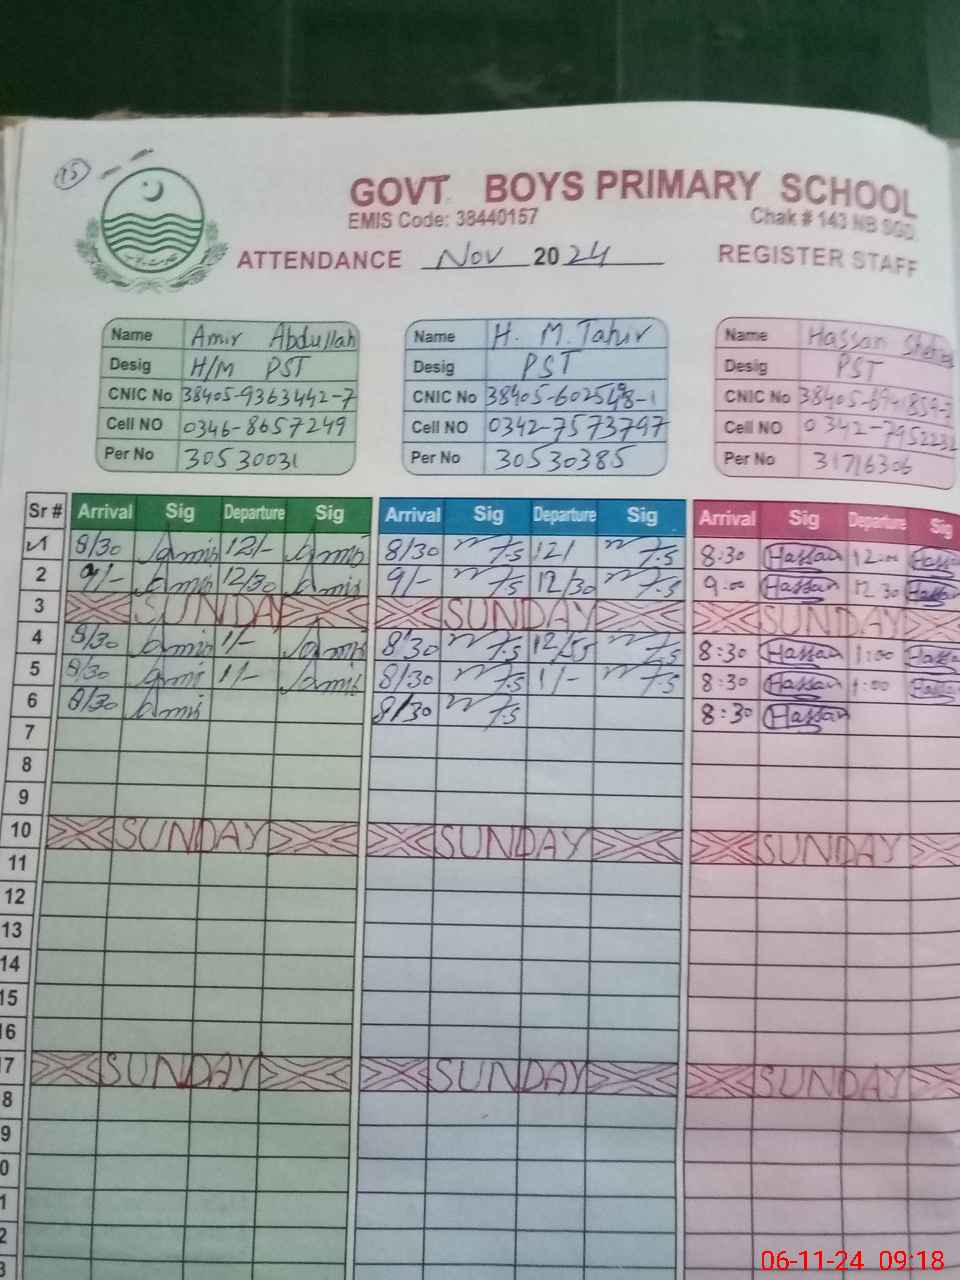 15
GOVT. BOYS PRIMARY SCHOOL
EMIS Code: 38440157 Chak # 143 NB SGD.
ATTENDANCE Nov 2024 REGISTER STAFF
Name Amir Abdullah Name H. M. Tahir Name Hassan
Desig H/M PST Desig PST Desig PST
CNIC No 38405-9363442-7 CNIC No CNIC No
Cell NO 0346-8657249 Cell NO 0342-7573797 Cell NO
Per No 30530031 Per No 30530385 Per No 31716306
Sr # Arrival Sig Departure Sig Arrival Sig Departure Sig Arrival Sig Departure Sig
1 8/30 Amir 12/- Amir 8/30 12/ 8:30 Hassan 12:00 Hassan
2 9/- Amir 12/30 Amir 9/- 12/30 9:00 Hassan 12 30 Hassan
3 SUNDAY SUNDAY SUNDAY
4 8/30 Amir 1/- Amir 8/30 12/55 8:30 Hassan 1:00 Hassan
5 8/30 Amir 1/- Amir 8/30 1/- 8:30 Hassan 1:00 Hassan
6 8/30 Amir 8/30 8:30 Hassan
7
8
9
10 SUNDAY SUNDAY SUNDAY
11
12
13
14
15
16
17 SUNDAY SUNDAY SUNDAY
8
9
0
1
2
3
06-11-24 09:18